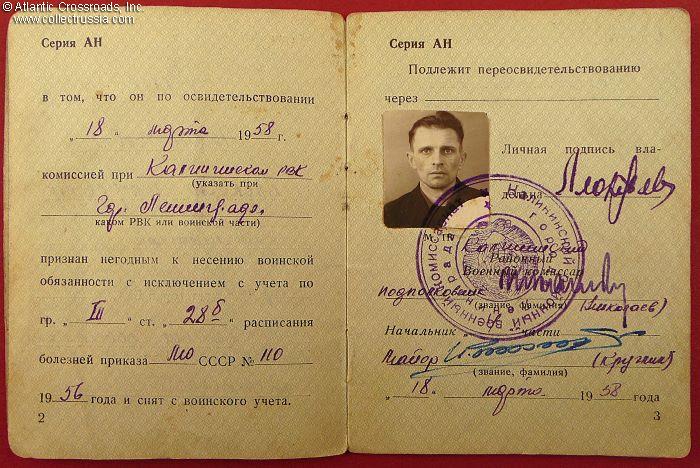 © Atlantic Crossroads, Inc.
www.collectrussia.com
Серия АН
в том, что он по освидетельствовании
„18“ марта 1958 г.
комиссией при Калининском РВК
(указать при
гор. Ленинграда
каком РВК или воинской части)
признан негодным к несению воинской
обязанности с исключением с учета по
гр. „III“ ст. „28б“ расписания
болезней приказа МО СССР № 110
1956 года и снят с воинского учета.
2
Серия АН
Подлежит переосвидетельствованию
через
Личная подпись вла-
дельца
М. П.
Калининский
Районный
Военный комиссар
Подполковник
(звание, фамилия)
Начальник части
Майор
(звание, фамилия)
„18“ марта 1958 года
3